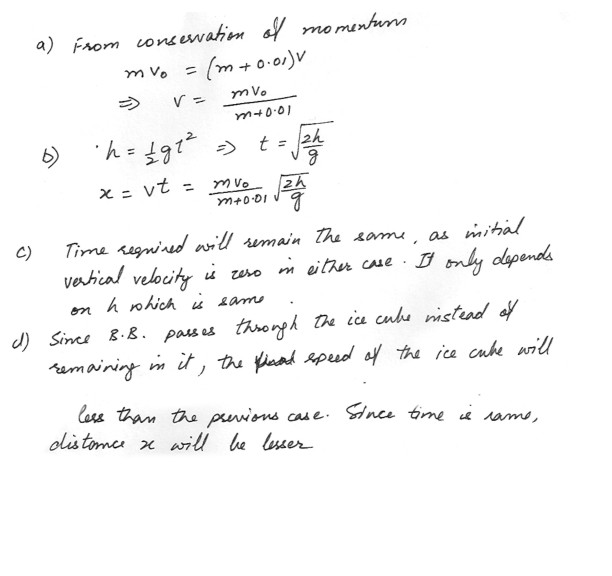 a) From conservation of momentum
m v₀ = (m + 0.01)v
⇒ v = mv₀ / m+0.01
b) h = ½gt² ⇒ t = √(2h/g)
x = vt = mv₀ / m+0.01 √(2h/g)
c) Time required will remain the same, as initial
vertical velocity is zero in either case. It only depends
on h which is same.
d) Since B.B. passes through the ice cube instead of
remaining in it, the speed of the ice cube will
less than the previous case. Since time is same,
distance x will be lesser